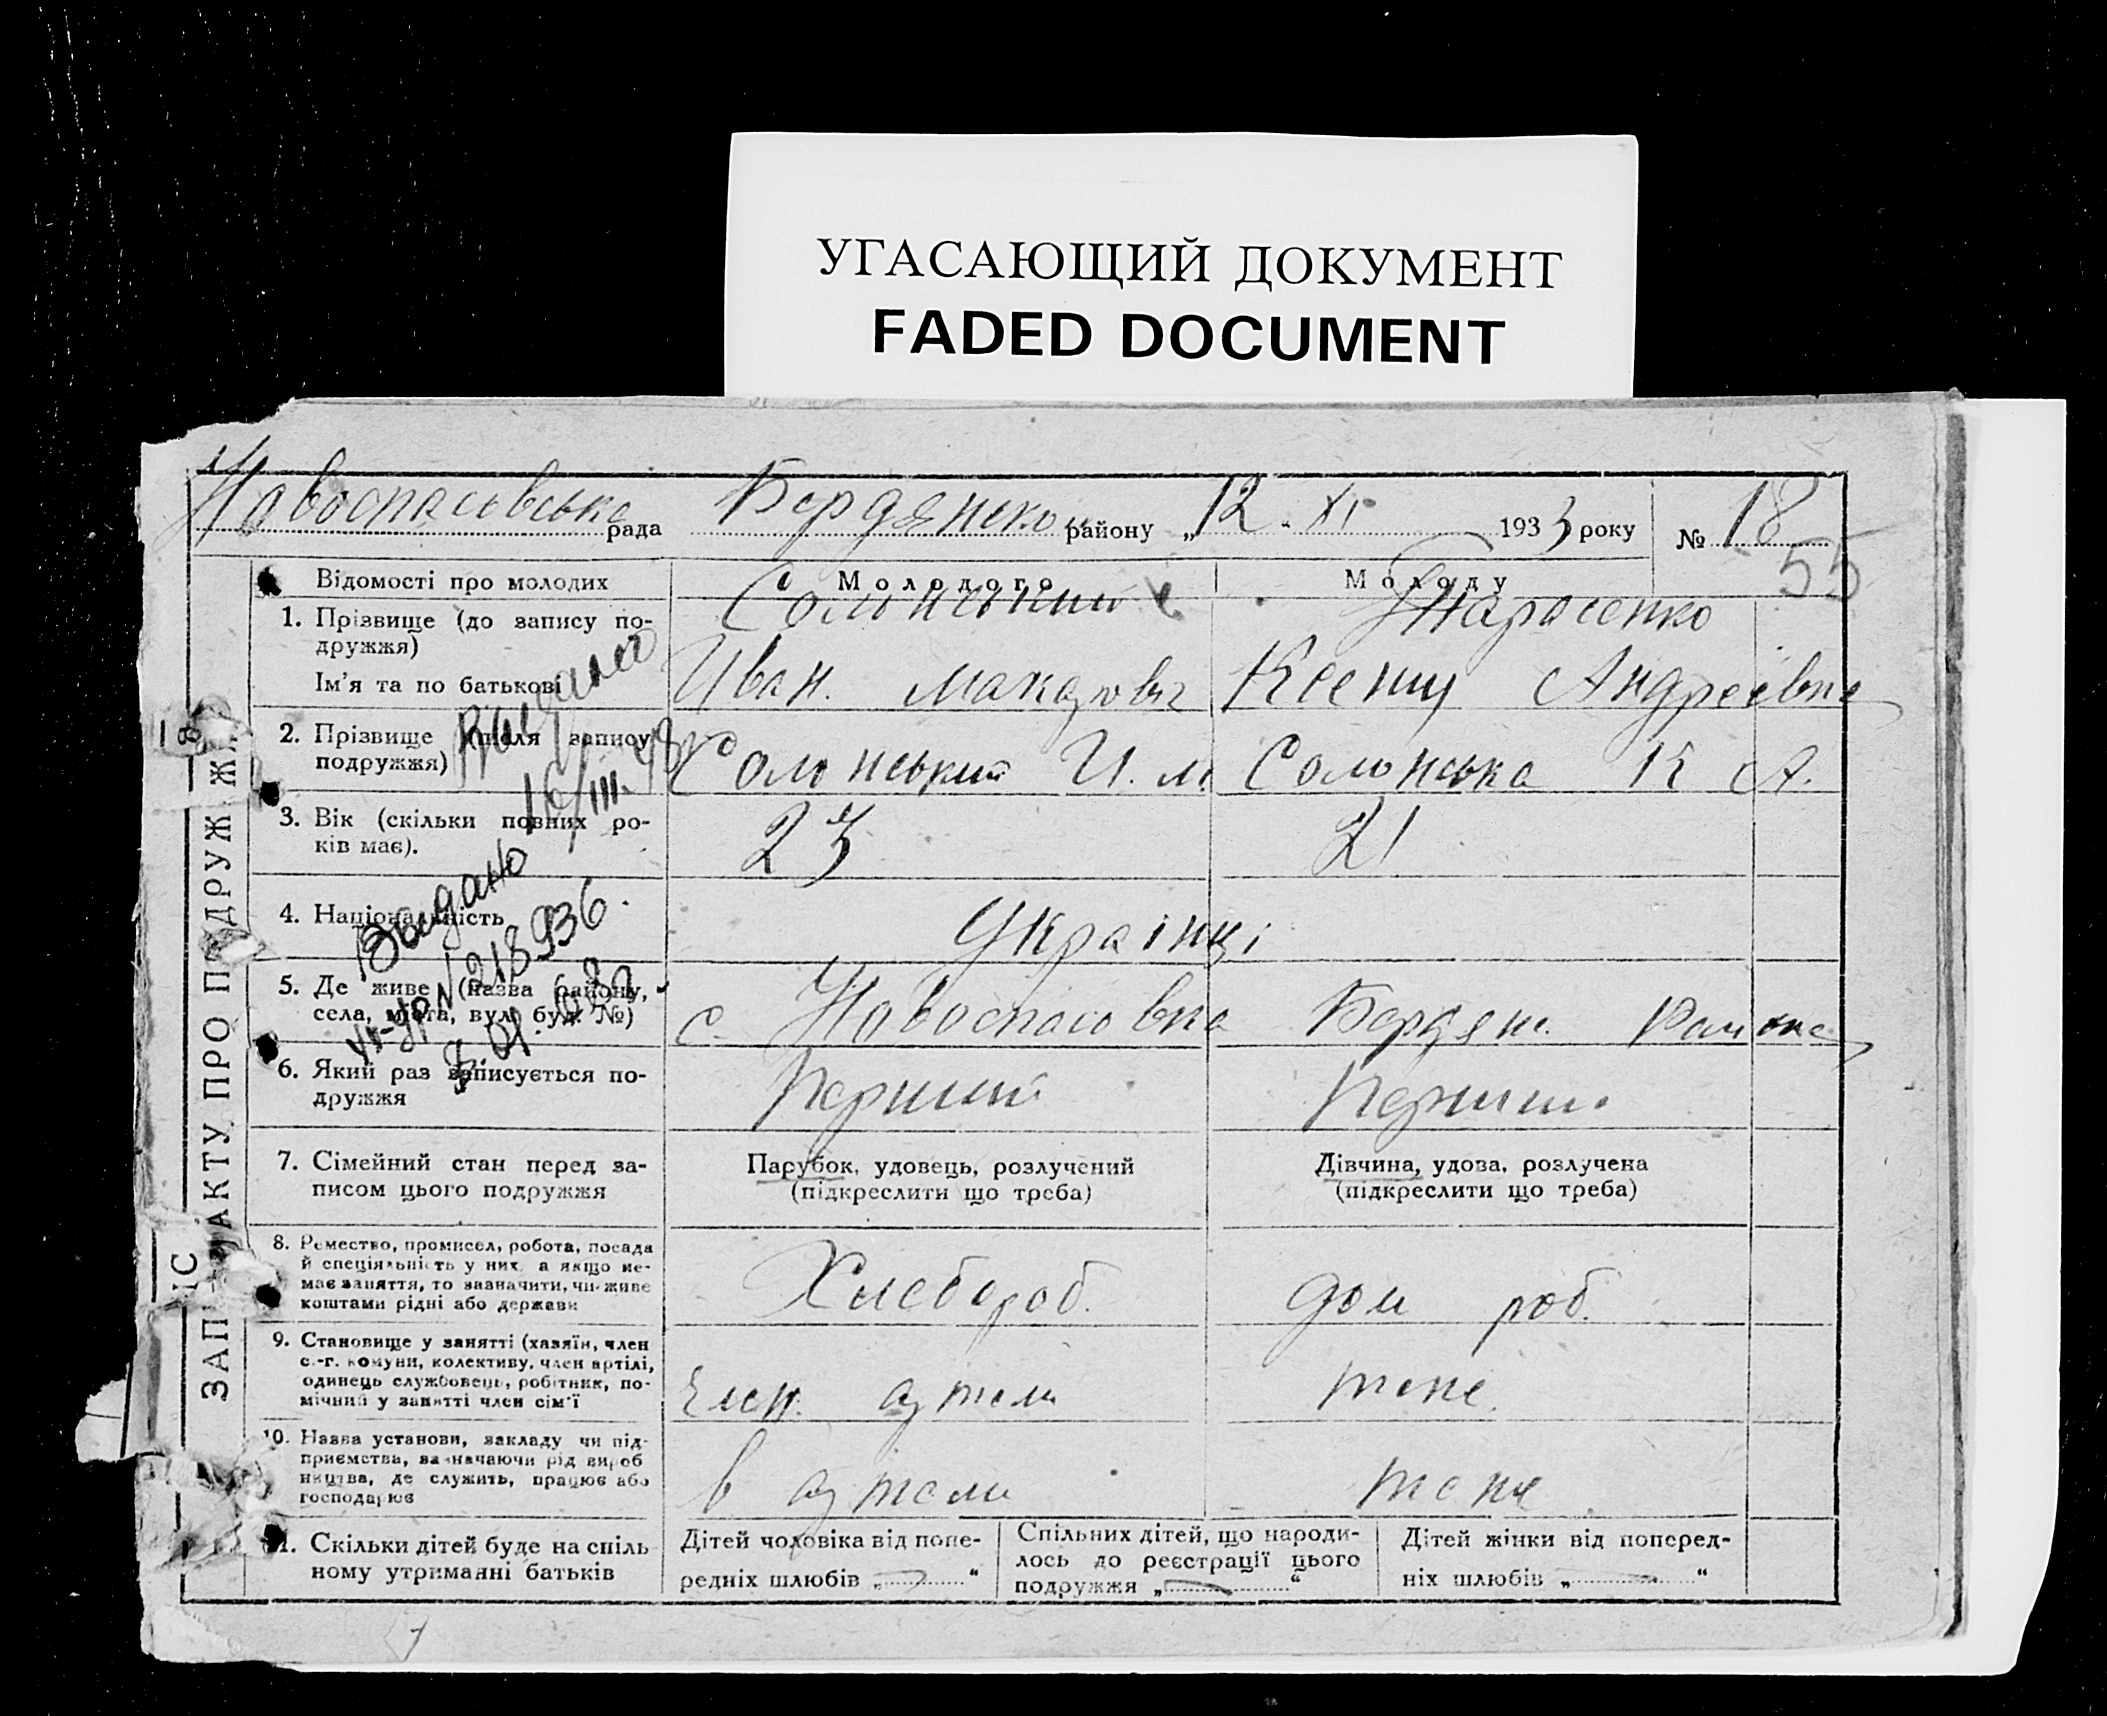 УГАСАЮЩИЙ ДОКУМЕНТ
FADED DOCUMENT
Новоспасівська рада Бердянсько району „12 - XI 1933 року № 18
55
ЗАПИС АКТУ ПРО ПОДРУЖЖЯ
Відомості про молодих Молодого Молоду
1. Прізвище (до запису по-
дружжя)
Солонський Тарасенко
Ім'я та по батькові Иван. Макарович Ксеня Андреевна
2. Прізвище (після запису
подружжя)
Солонський И. М. Солонська К А.
3. Вік (скільки повних ро-
ків має).
23 21
4. Національність Українці
5. Де живе (назва району,
села, міста, вул. буд. №)
с. Новоспасовка Бердян. Району
6. Який раз записується по-
дружжя
Перший Перший
7. Сімейний стан перед за-
писом цього подружжя
Парубок, удовець, розлучений
(підкреслити що треба)
Дівчина, удова, розлучена
(підкреслити що треба)
8. Ремество, промисел, робота, посада
й спеціяльність у них, а якщо не-
має заняття, то зазначити, чиї живе
коштами рідні або держави
Хлебороб. дом роб.
9. Становище у занятті (хазяїн, член
с.-г. комуни, колективу, член артілі,
одинець службовець, робітник, по-
мічний у занятті член сім'ї
Член артели тоже.
10. Назва установи, закладу чи під-
приємства, зазначаючи рід вироб
ництва, де служить, працює або
господарює
в артели тоже
11. Скільки дітей буде на спіль
ному утриманні батьків
Дітей чоловіка від попе-
редніх шлюбів „ “
Спільних дітей, що народи-
лось до реєстрації цього
подружжя „ “
Дітей жінки від поперед-
ніх шлюбів „ “
Выдано
16/III.
Выдано
№ 218936.